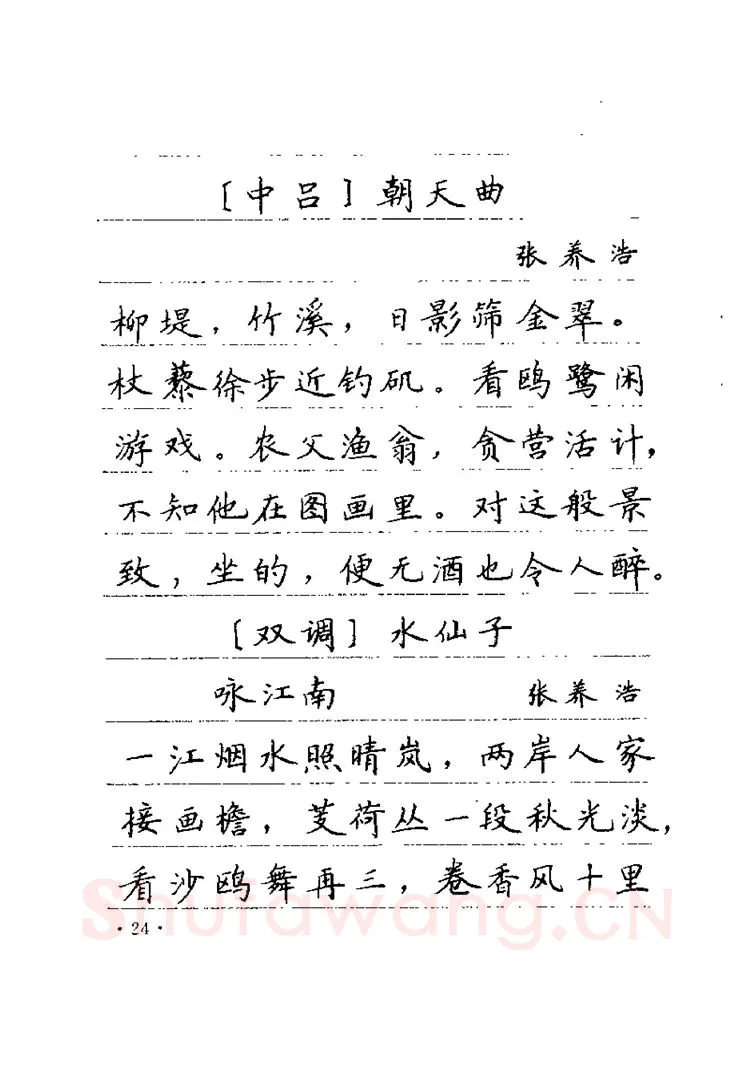 [中吕]朝天曲
张养浩
柳堤，竹溪，日影筛金翠。
杖藜徐步近钓矶。看鸥鹭闲
游戏。农父渔翁，贪营活计，
不知他在图画里。对这般景
致，坐的，便无酒也令人醉。
[双调]水仙子
咏江南 张养浩
一江烟水照晴岚，两岸人家
接画檐，芰荷丛一段秋光淡，
看沙鸥舞再三，卷香风十里
·24·
Shufawang.CN